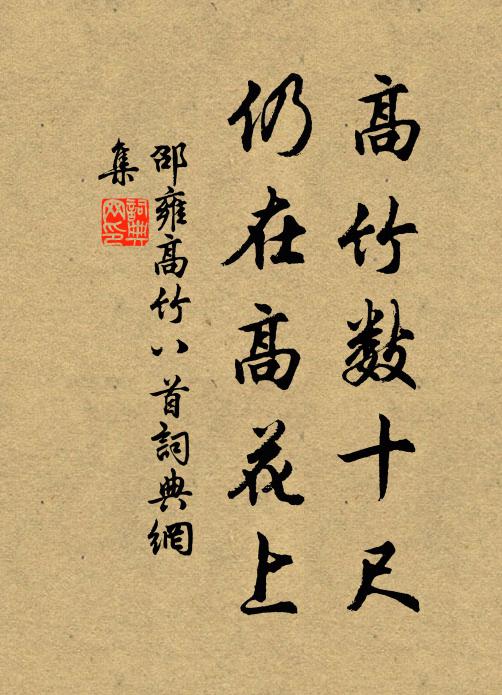 高竹数十尺
仍在高花上
邵雍高竹八首詞典網
集
詞典網印